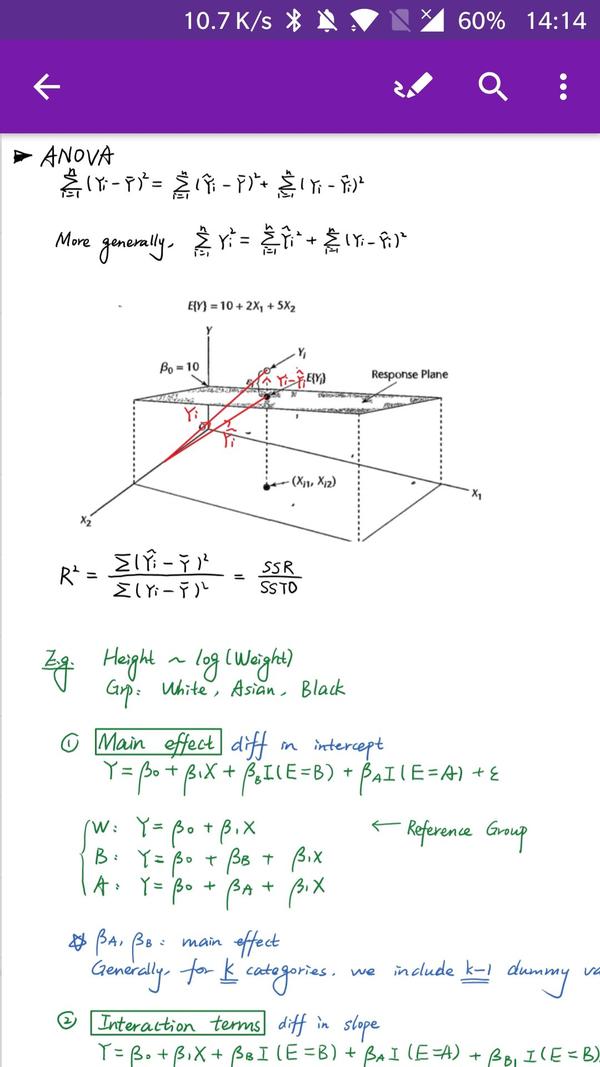 10.7 K/s 60% 14:14
► ANOVA
∑ᵢ₌₁ⁿ (Yi − Ȳ)² = ∑ᵢ₌₁ⁿ (Ŷi − Ȳ)² + ∑ᵢ₌₁ⁿ (Yi − Ŷi)²
More generally, ∑ᵢ₌₁ⁿ Yi² = ∑ᵢ₌₁ⁿ Ŷi² + ∑ᵢ₌₁ⁿ (Yi − Ŷi)²
E{Y} = 10 + 2X₁ + 5X₂
Y
Yi
β₀ = 10
Yi − Ŷi
E{Yi}
Response Plane
Yi
Ŷi
(Xi1, Xi2)
X₁
X₂
R² = ∑(Ŷi − Ȳ)² / ∑(Yi − Ȳ)² = SSR / SSTO
E.g. Height ~ log(Weight)
Grp: White, Asian, Black
① Main effect diff in intercept
Y = β₀ + β₁X + βB I(E=B) + βA I(E=A) + ε
W: Y = β₀ + β₁X ← Reference Group
B: Y = β₀ + βB + β₁X
A: Y = β₀ + βA + β₁X
βA, βB: main effect
Generally, for k categories, we include k−1 dummy va
② Interaction terms diff in slope
Y = β₀ + β₁X + βB I(E=B) + βA I(E=A) + βB1 I(E=B)